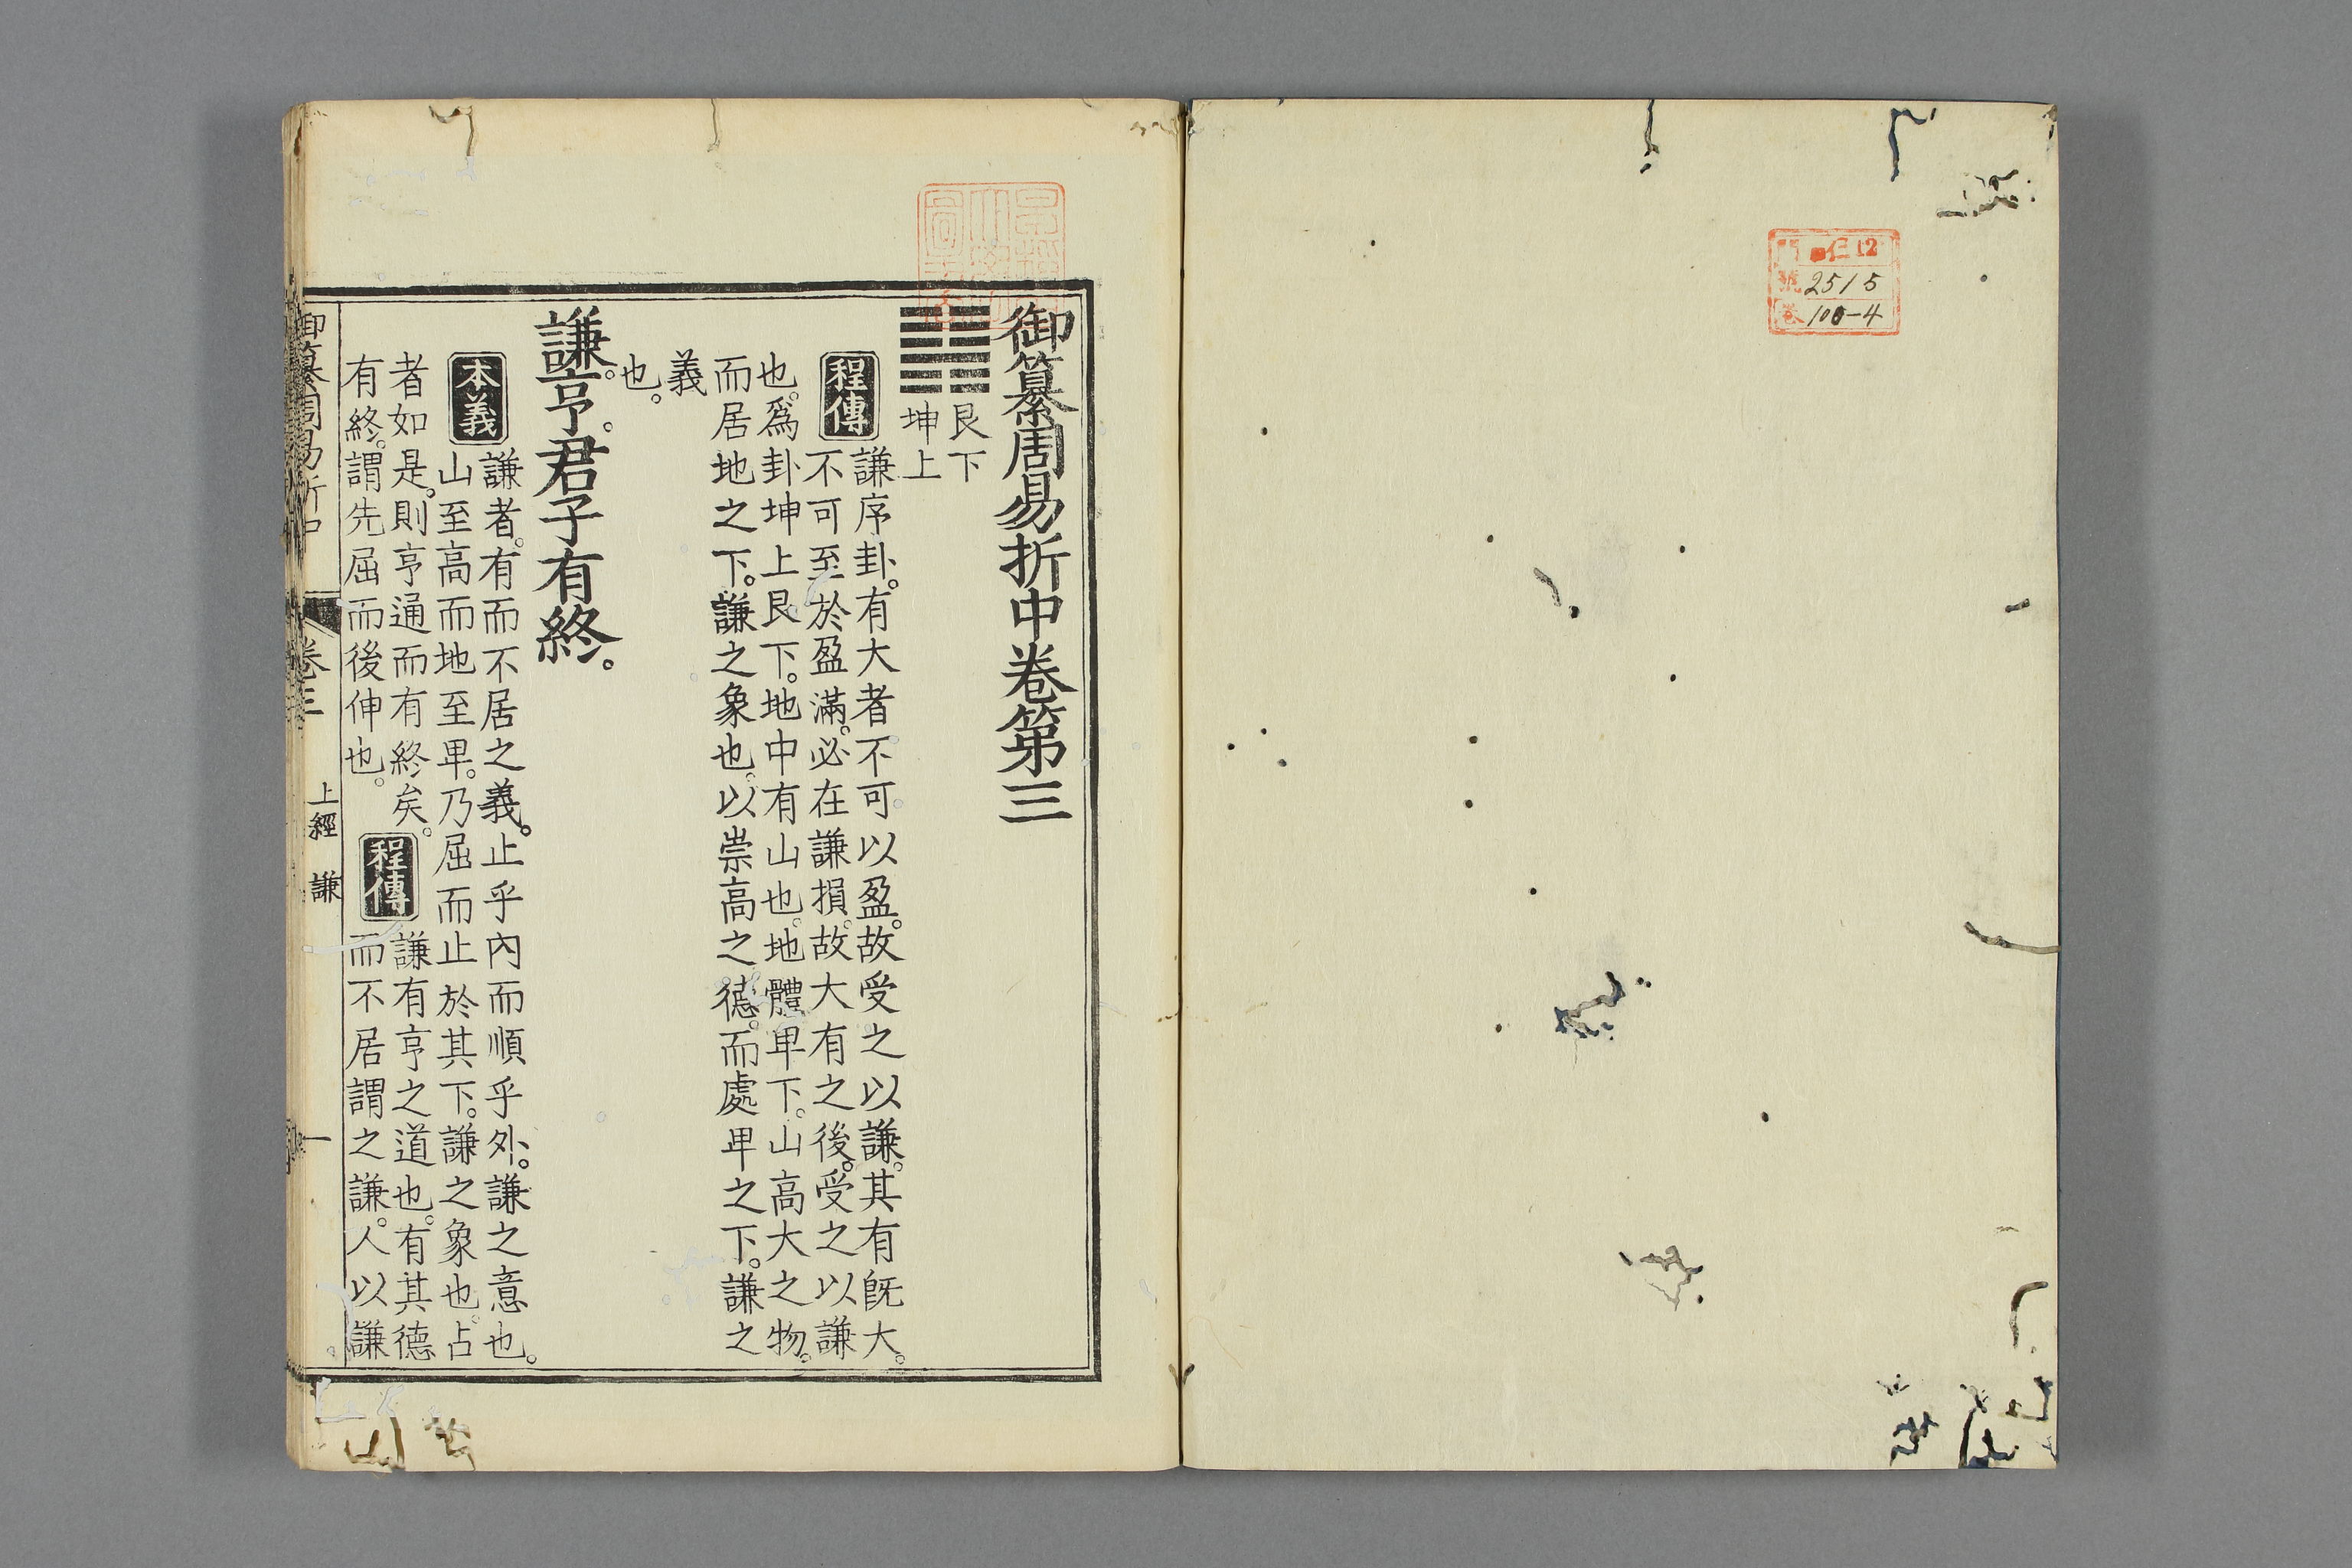 仁12
2515
100-4
御纂周易折中卷第三
艮下
坤上
程傳
謙序卦。有大者不可以盈。故受之以謙。其有旣大。
不可至於盈滿。必在謙損。故大有之後。受之以謙
也。爲卦坤上艮下。地中有山也。地體卑下。山高大之物。
而居地之下。謙之象也。以崇高之德。而處卑之下。謙之
義
也。
謙。亨。君子有終。
本義
謙者。有而不居之義。止乎內而順乎外。謙之意也。
山至高而地至卑。乃屈而止於其下。謙之象也。占
者如是。則亨通而有終矣。
有終。謂先屈而後伸也。
程傳
謙有亨之道也。有其德
而不居謂之謙。人以謙
御纂周易折中
卷三
上經 謙
一